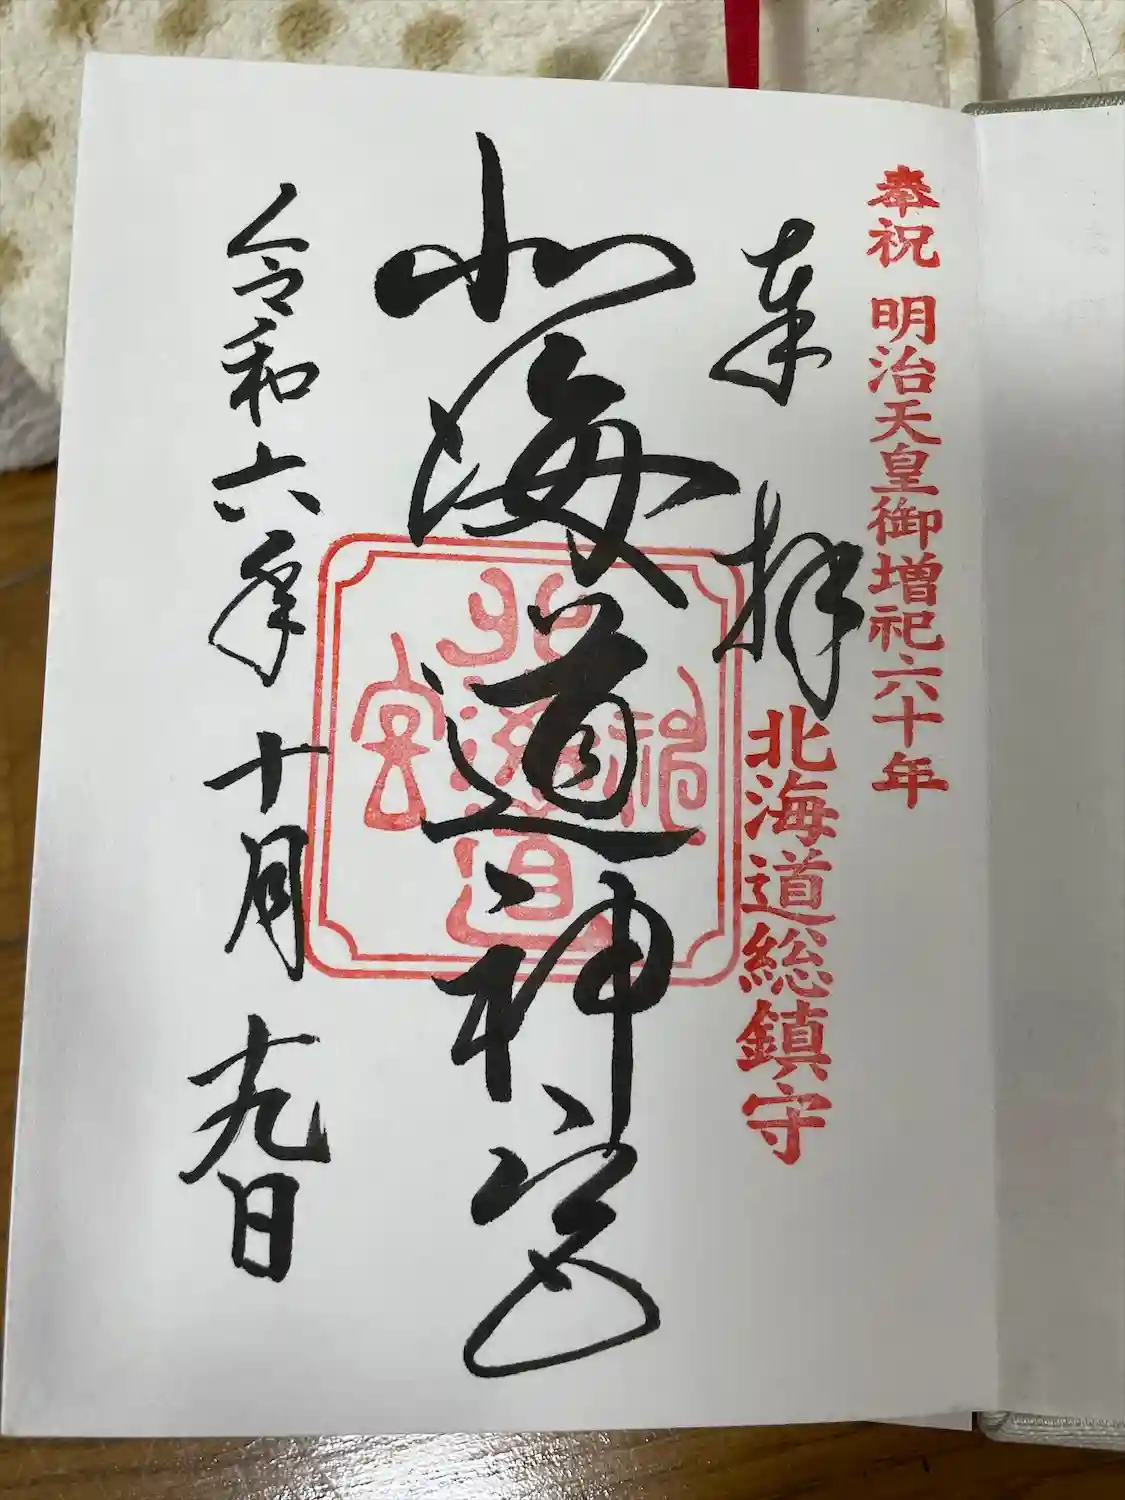 奉祝 明治天皇御増祀六十年
奉拝
北海道総鎮守
北海道神宮
北海道神宮
令和六年十月十九日